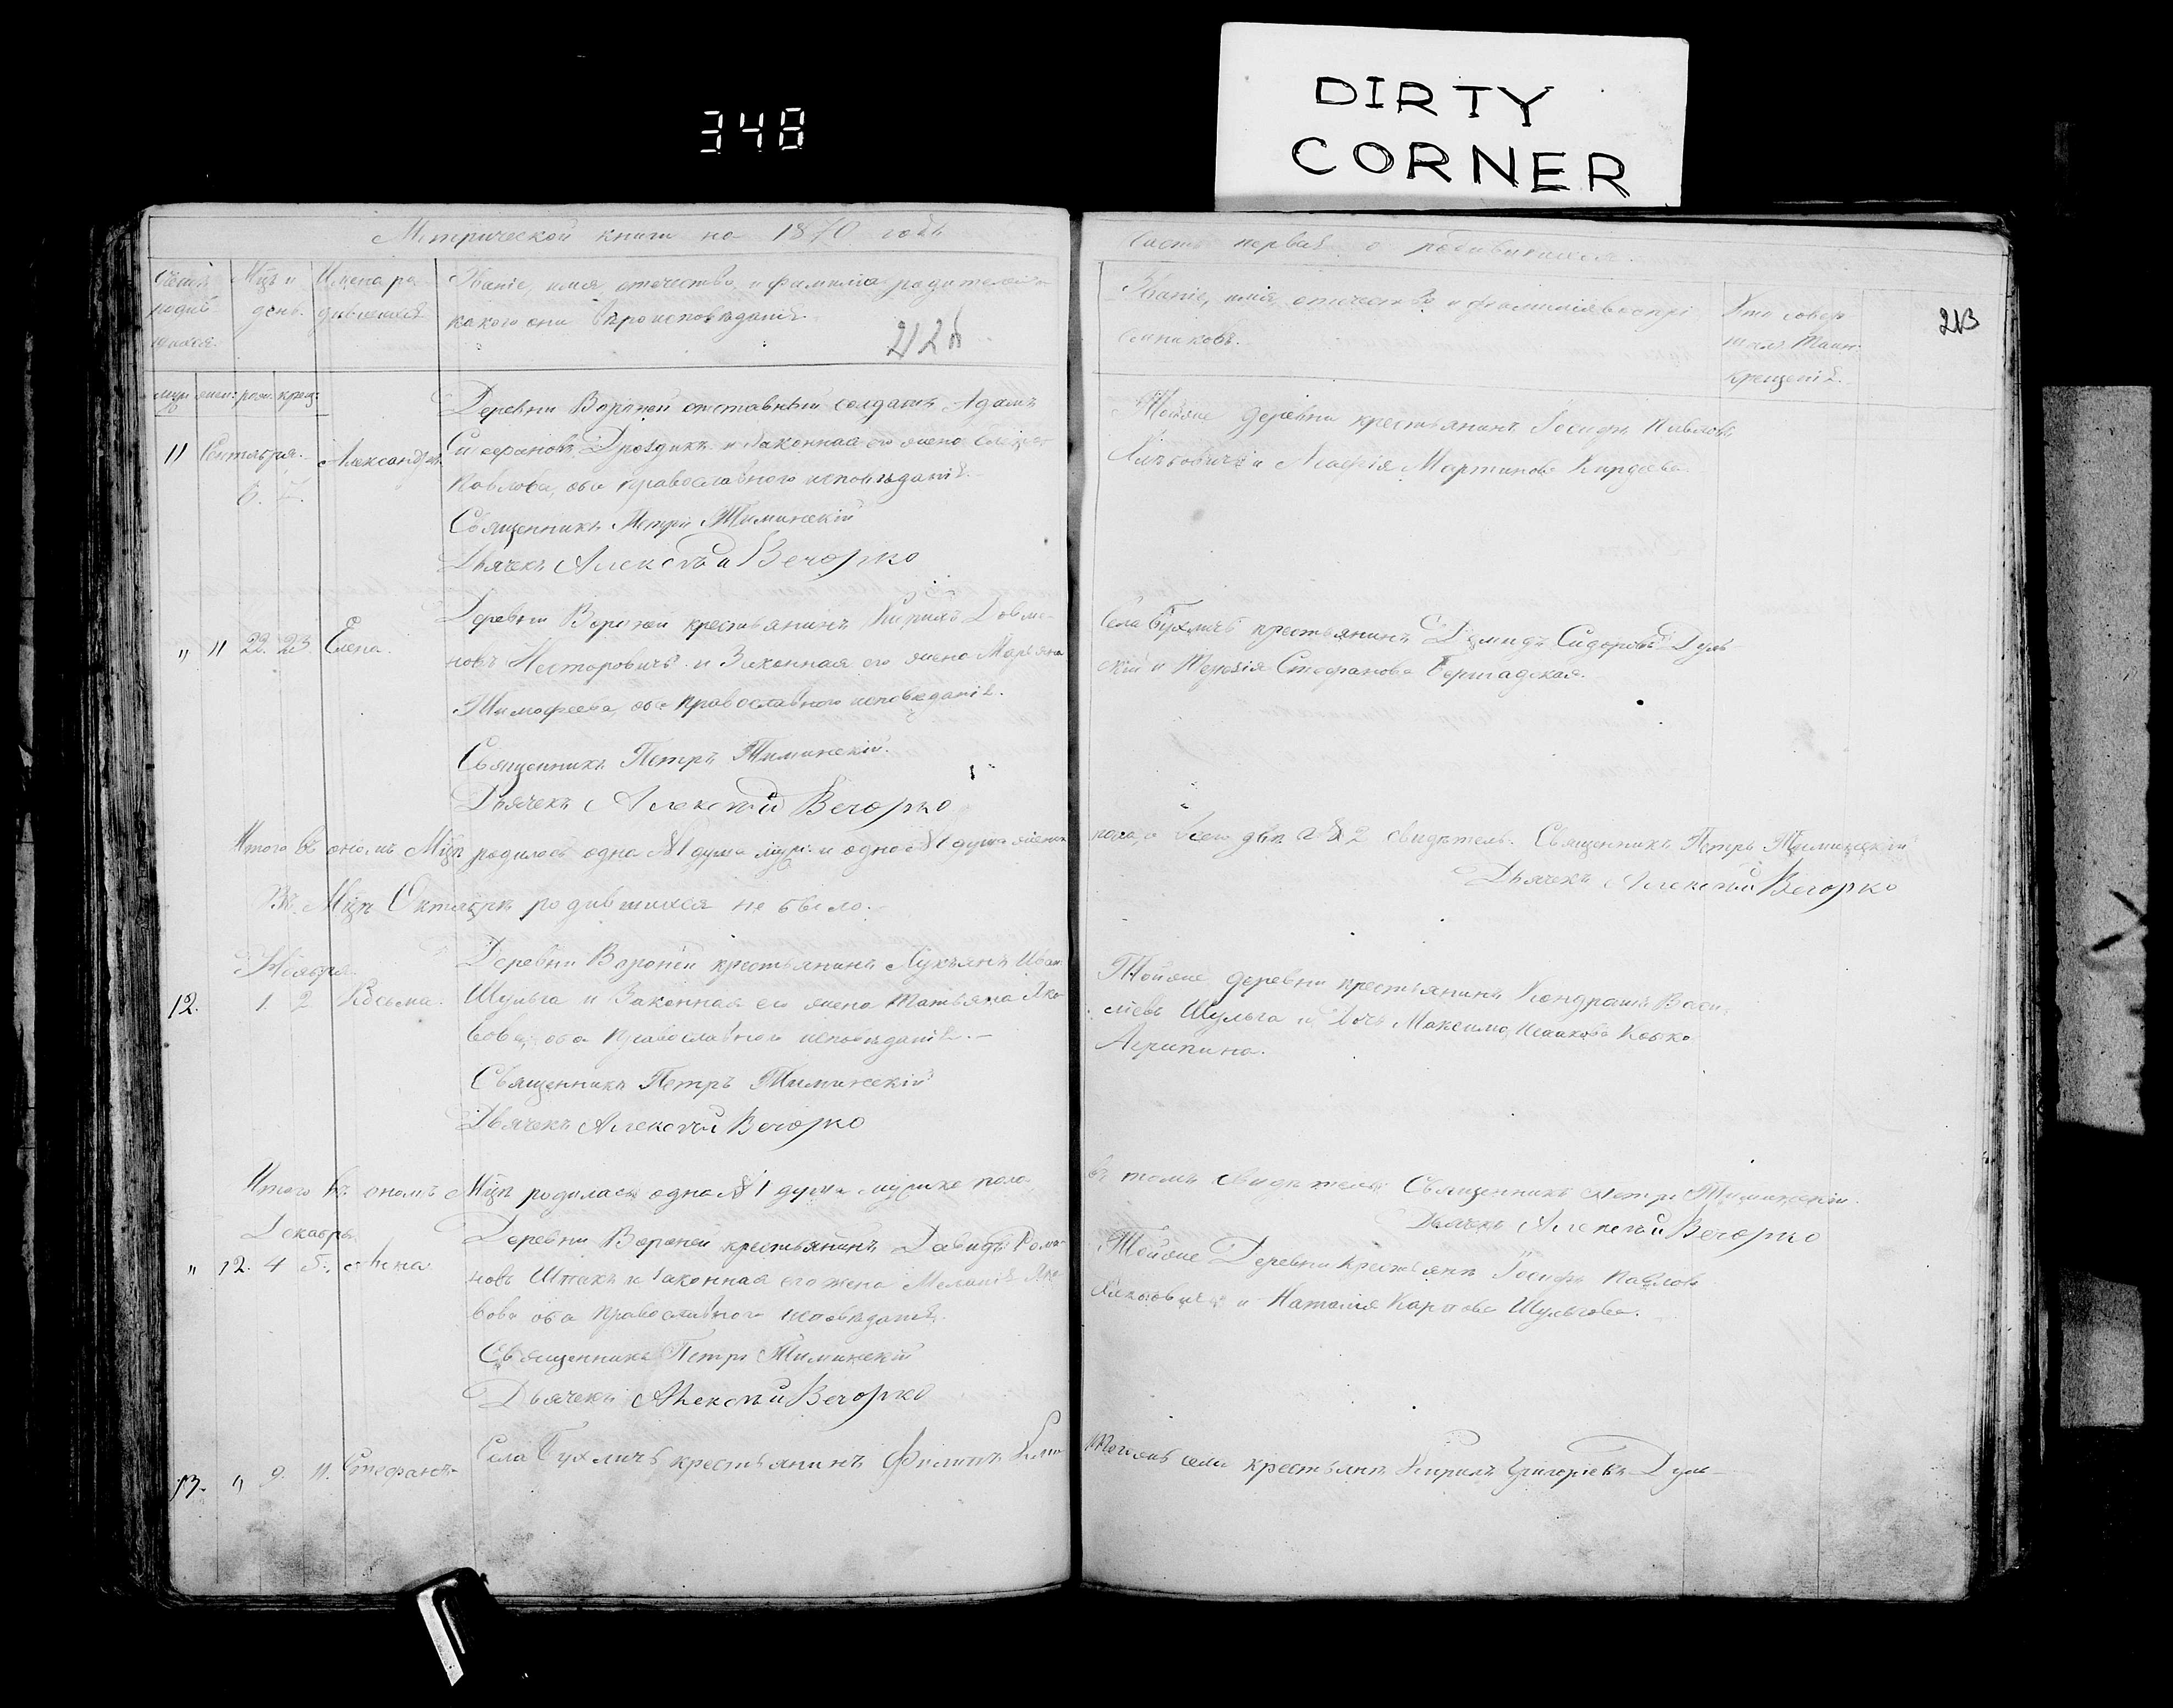 DIRTY
CORNER
348
Метрической книги на 1870 годъ
Счетъ
родив-
шихся.
Мцъ и
день.
Имена ро
дившихся
Званіе, имя, отечество и фамилія родителей и
какого они вѣроисповѣданія.
212
муж жен: рож: крещ:
Деревни Вороней отставный солдатъ Адамъ
11 Сентября. Александръ
Стефановъ Дроздикъ и законная его жена
6.
Павлова, оба православного исповѣданія.
Священникъ Петръ Тиминскій
Дьячекъ Алексѣй Вечорко
Деревни Вороней крестьянинъ
" 11 22. 23. Елена.
новъ Несторовичъ и законная его жена Марьяна
Тимофеева, оба православного исповѣданія.
Священникъ Петръ Тиминскій.
Дьячекъ Алексѣй Вечорко
Итого въ ономъ Мцѣ родилось одна № 1 душа муж: и одна № 1 душа женск
Въ Мцѣ Октябрѣ родившихся не было.
Ноября
Деревни Вороней крестьянинъ Лукъянъ Иван
12. 1. 2 Косьма.
Шульга и Законная его жена Татьяна Яко
вова, оба православного исповѣданія.
Священникъ Петръ Тиминскій
Дьячекъ Алексѣй Вечорко
Итого въ ономъ Мцѣ родилась одна № 1 душа мужска пола
Декабрь
Деревни Вороней крестьянинъ Давидъ Рома
" 12. 4 5. Анна
новъ Шпакъ и законная его жена Меланія Яко
вова оба православного исповѣданія.
Священникъ Петръ Тиминскій
Дьячекъ Алексѣй Вечорко
Села Бухличъ крестьянинъ Филипъ Клим
13. " 9. 11. Стефанъ
Часть первая о родившихся.
Званіе, имя, отечество и фамилія воспрі
емниковъ.
Кто совер
шалъ Таин
крещенія.
213
Тойже деревни крестьянинъ Іосифъ Павловъ
и Мартинова
Села Бухличъ крестьянинъ Демидъ Сидоровъ Дуль
скій и Терезія Стефанова
пола, а всего двѣ № 2 свидѣтель. Священникъ Петръ Тиминскій
Дьячекъ Алексѣй Вечорко
Тойже деревни крестьянинъ Кондратъ Васи
лѣевъ Шульга и дочь Максима Исаакова
Агрипина.
въ томъ свидѣтель Священникъ Петръ Тиминскій.
Дьячекъ Алексѣй Вечорко
Тойже Деревни крестьянъ Іосифъ Павловъ
и Наталія Карпова Шульгова.
Тогожъ села крестьянъ Кирилъ Григоріевъ Дуль